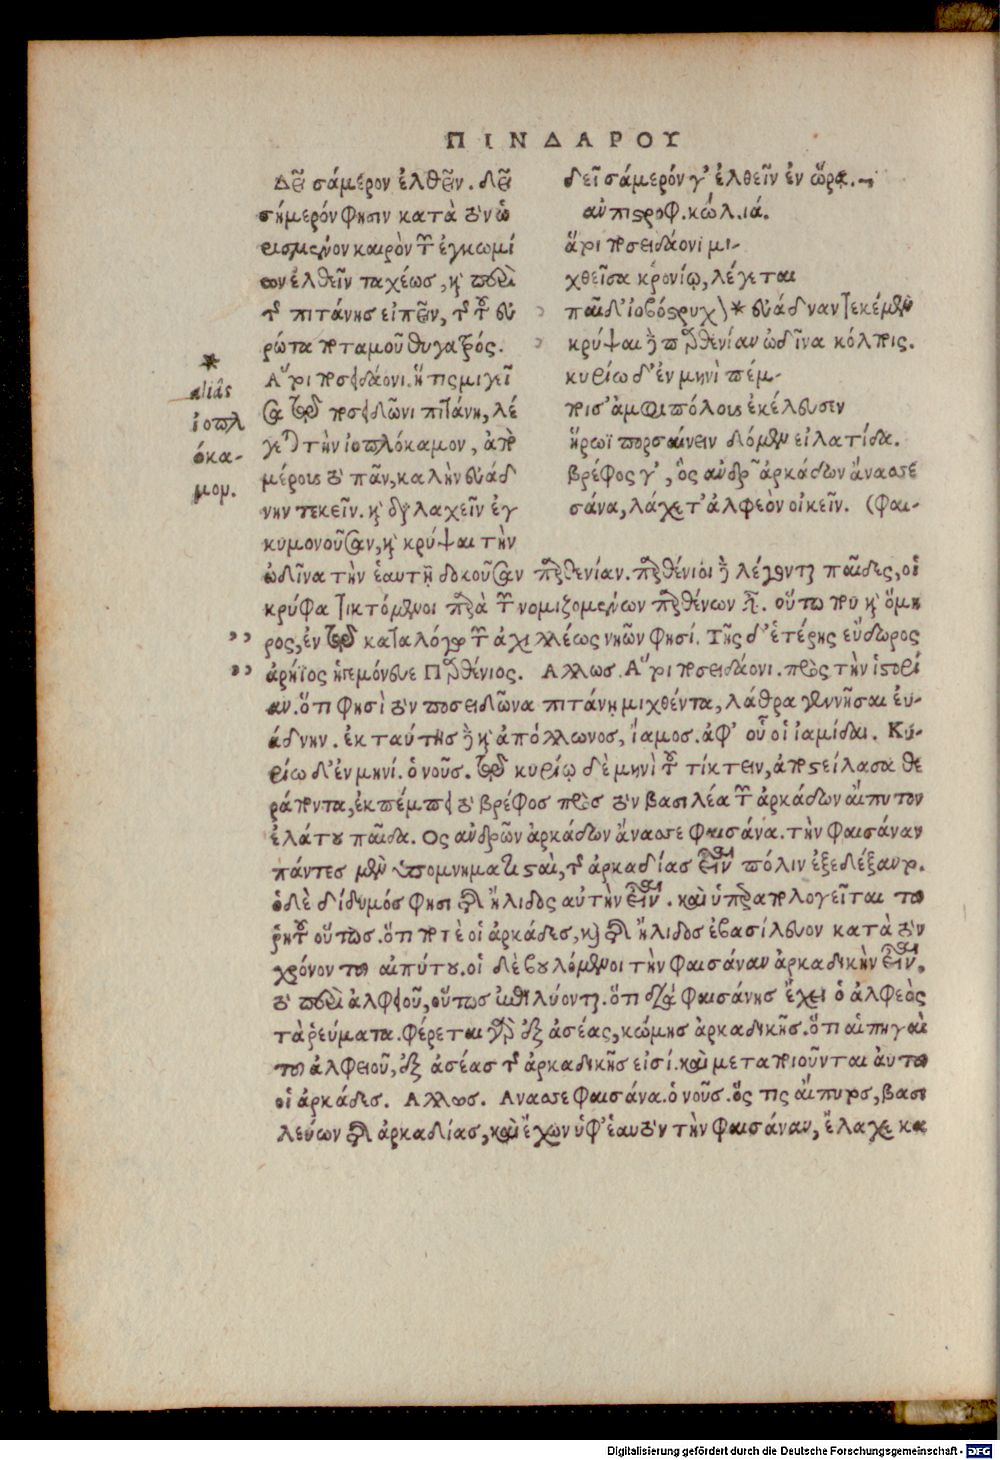 ΠΙΝΔΑΡΟΥ
Δεῖ σάμερον ἐλθεῖν. δεῖ
σήμερόν φησιν κατὰ τὸν ὡ
ρισμένον καιρὸν τῶν ἐγκωμί
ων ἐλθεῖν ταχέως, καὶ περὶ
τῆς πιτάνης εἰπεῖν, τῆς τοῦ εὐ
ρώτα ποταμοῦ θυγατρός.
Ἅτι ποσειδάονι. ἥτις μιγεῖ
σα τῷ ποσειδῶνι πιτάνη, λέ
γεται τὴν ἰοπλόκαμον, ἀπὸ
μέρους τὸ πᾶν, καλὴν εὐάδ
νην τεκεῖν. καὶ δὴ λαχεῖν ἐγ
κυμονοῦσαν, καὶ κρύψαι τὴν
*
aliâs
ἰοπλ
όκα-
μον.
δεῖ σάμερόν γ' ἐλθεῖν ἐν ὥρα.
ἀντιστροφ. κώλ. ιά.
ἅτοι ποσειδάονι μι-
χθεῖσα κρονίῳ, λέγεται
παῖδ' ἰοβόστρυχον * εὐάδναν τεκέμεν
κρύψαι δὲ παρθενίαν ὠδῖνα κόλποις.
κυρίω δ' ἐν μηνὶ πέμ-
ποισ' ἀμφιπόλους ἐκέλευσεν
ἥρωϊ πορσαίνειν δόμεν εἰλατίδα.
βρέφος γ', ὃς ἀνδρῶν ἀρκάδων ἄνασσε
σάνα, λάχε τ' ἀλφεὸν οἰκεῖν. (φαι-
ὠδῖνα τὴν ἑαυτῇ δοκοῦσαν παρθενίαν. παρθένιοι δὲ λέγονται παῖδες, οἱ
κρύφα τικτόμενοι παρὰ τῶν νομιζομένων παρθένων εἶναι. οὕτω που καὶ ὅμη
ρος, ἐν τῷ καταλόγῳ τῶν ἀχιλλέως νηῶν φησί. Τῆς δ' ἑτέρης εὔδωρος
ἀρήϊος ἡγεμόνευε Παρθένιος. Ἄλλως. Ἅτοι ποσειδάονι. πρὸς τὴν ἱστορί
αν. ὅτι φησὶ τὸν ποσειδῶνα πιτάνῃ μιχθέντα, λάθρα γεννῆσαι εὐ-
άδνην. ἐκ ταύτης δὲ καὶ ἀπόλλωνος, ἴαμος. ἀφ' οὗ οἱ ἰαμίδαι. Κυ-
ρίω δ' ἐν μηνί. ὁ νοῦς. τῷ κυρίῳ δὲ μηνὶ τοῦ τίκτειν, ἀποστείλασα θε
ράποντα, ἐκπέμπει τὸ βρέφος πρὸς τὸν βασιλέα τῶν ἀρκάδων αἴπυτον
ἐλάτου παῖδα. Ος ἀνδρῶν ἀρκάδων ἄνασσε φαισάνα. τὴν φαισάναν
πάντες μὲν ὑπομνηματισταὶ, τῆς ἀρκαδίας εἶναι πόλιν ἐξεδέξαντο.
ὁ δὲ δίδυμός φησι τῆς ἤλιδος αὐτὴν εἶναι. καὶ ὑπεραπολογεῖται τοῦ
ῥητοῦ οὕτως. ὅτι ποτὲ οἱ ἀρκάδες, καὶ τῆς ἤλιδος ἐβασίλευον κατὰ τὸν
χρόνον τοῦ αἰπύτου. οἱ δὲ βουλόμενοι τὴν φαισάναν ἀρκαδικὴν εἶναι,
τὸ περὶ ἀλφειοῦ, οὕτως ἐπιλύονται. ὅτι διὰ φαισάνης ἔχει ὁ ἀλφεὸς
τὰ ῥεύματα. φέρεται γὰρ ἐξ ἀσέας, κώμης ἀρκαδικῆς. ὅτι αἱ πηγαὶ
τοῦ ἀλφειοῦ, ἐξ ἀσέας τῆς ἀρκαδικῆς εἰσί. καὶ μεταποιοῦνται αὐτοῦ
οἱ ἀρκάδες. Ἄλλως. Ἄνασσε φαισάνα. ὁ νοῦς. ὅς τις αἴπυτος, βασι
λεύων τῆς ἀρκαδίας, καὶ ἔχων ὑφ' ἑαυτὸν τὴν φαισάναν, ἔλαχε κα
Digitalisierung gefördert durch die Deutsche Forschungsgemeinschaft - DFG